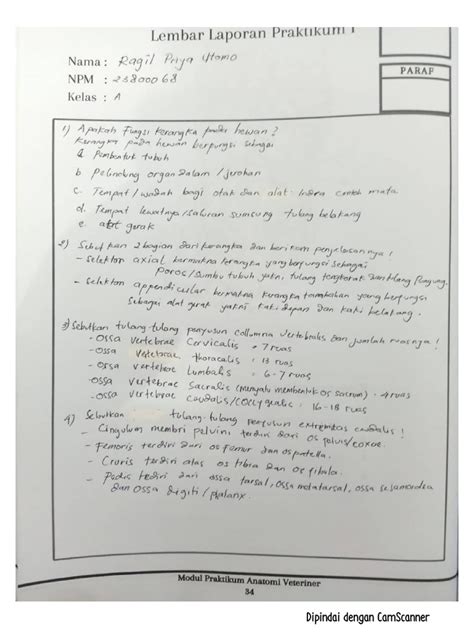 Lembar Laporan Praktikum I
Nama : Ragil Priya Utomo
NPM : 23800068
Kelas : A
PARAF
1) Apakah Fungsi kerangka pada hewan?
Kerangka pada hewan berfungsi sebagai
a. Pembentuk tubuh
b Pelindung organ dalam / jerohan
c. Tempat / wadah bagi otak dan alat indra contoh mata
d. Tempat lewatnya / saluran sumsung tulang belakang
e. alat gerak
2) Sebutkan 2 bagian dari kerangka dan berikan penjelasannya!
- Skeleton axial bermakna kerangka yang berfungsi sebagai
Poros / sumbu tubuh yakni, tulang tengkorak dan tulang punggung.
- Skeleton appendicular bermakna kerangka tambahan yang berfungsi
Sebagai alat gerak yakni kaki depan dan kaki belakang.
3) Sebutkan tulang-tulang penyusun collumna vertebralis dan jumlah ruasnya!
- Ossa vertebrae Cervicalis = 7 ruas
- Ossa vertebrae thoracalis : 13 ruas
- Ossa vertebrae Lumbalis : 6-7 ruas
- Ossa vertebrae Sacralis (menyatu membentuk os sacrum) : 4 ruas
- Ossa vertebrae Caudalis / coccygealis : 16-18 ruas
4) Sebutkan tulang-tulang penyusun extremitas caudalis!
- Cingulum membri pelvini terdiri dari os pelvis / coxae.
- Femoris terdiri dari os femur dan os patella.
- Cruris terdiri atas os tibia dan os fibula.
- Pedis terdiri dari ossa tarsal, ossa metatarsal, ossa sesamoidea
dan ossa digiti / phalanx.
Modul Praktikum Anatomi Veteriner
34
Dipindai dengan CamScanner